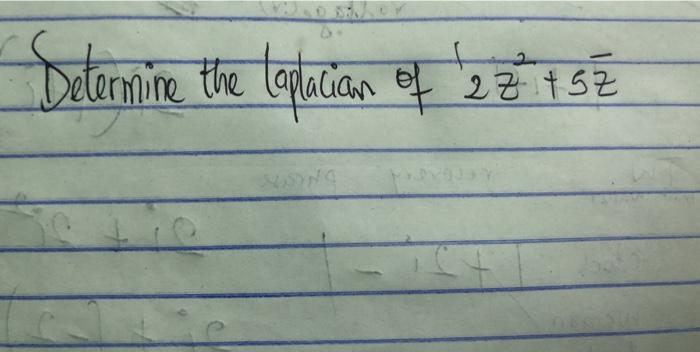 Determine the Laplacian of 2z² + 5z̅